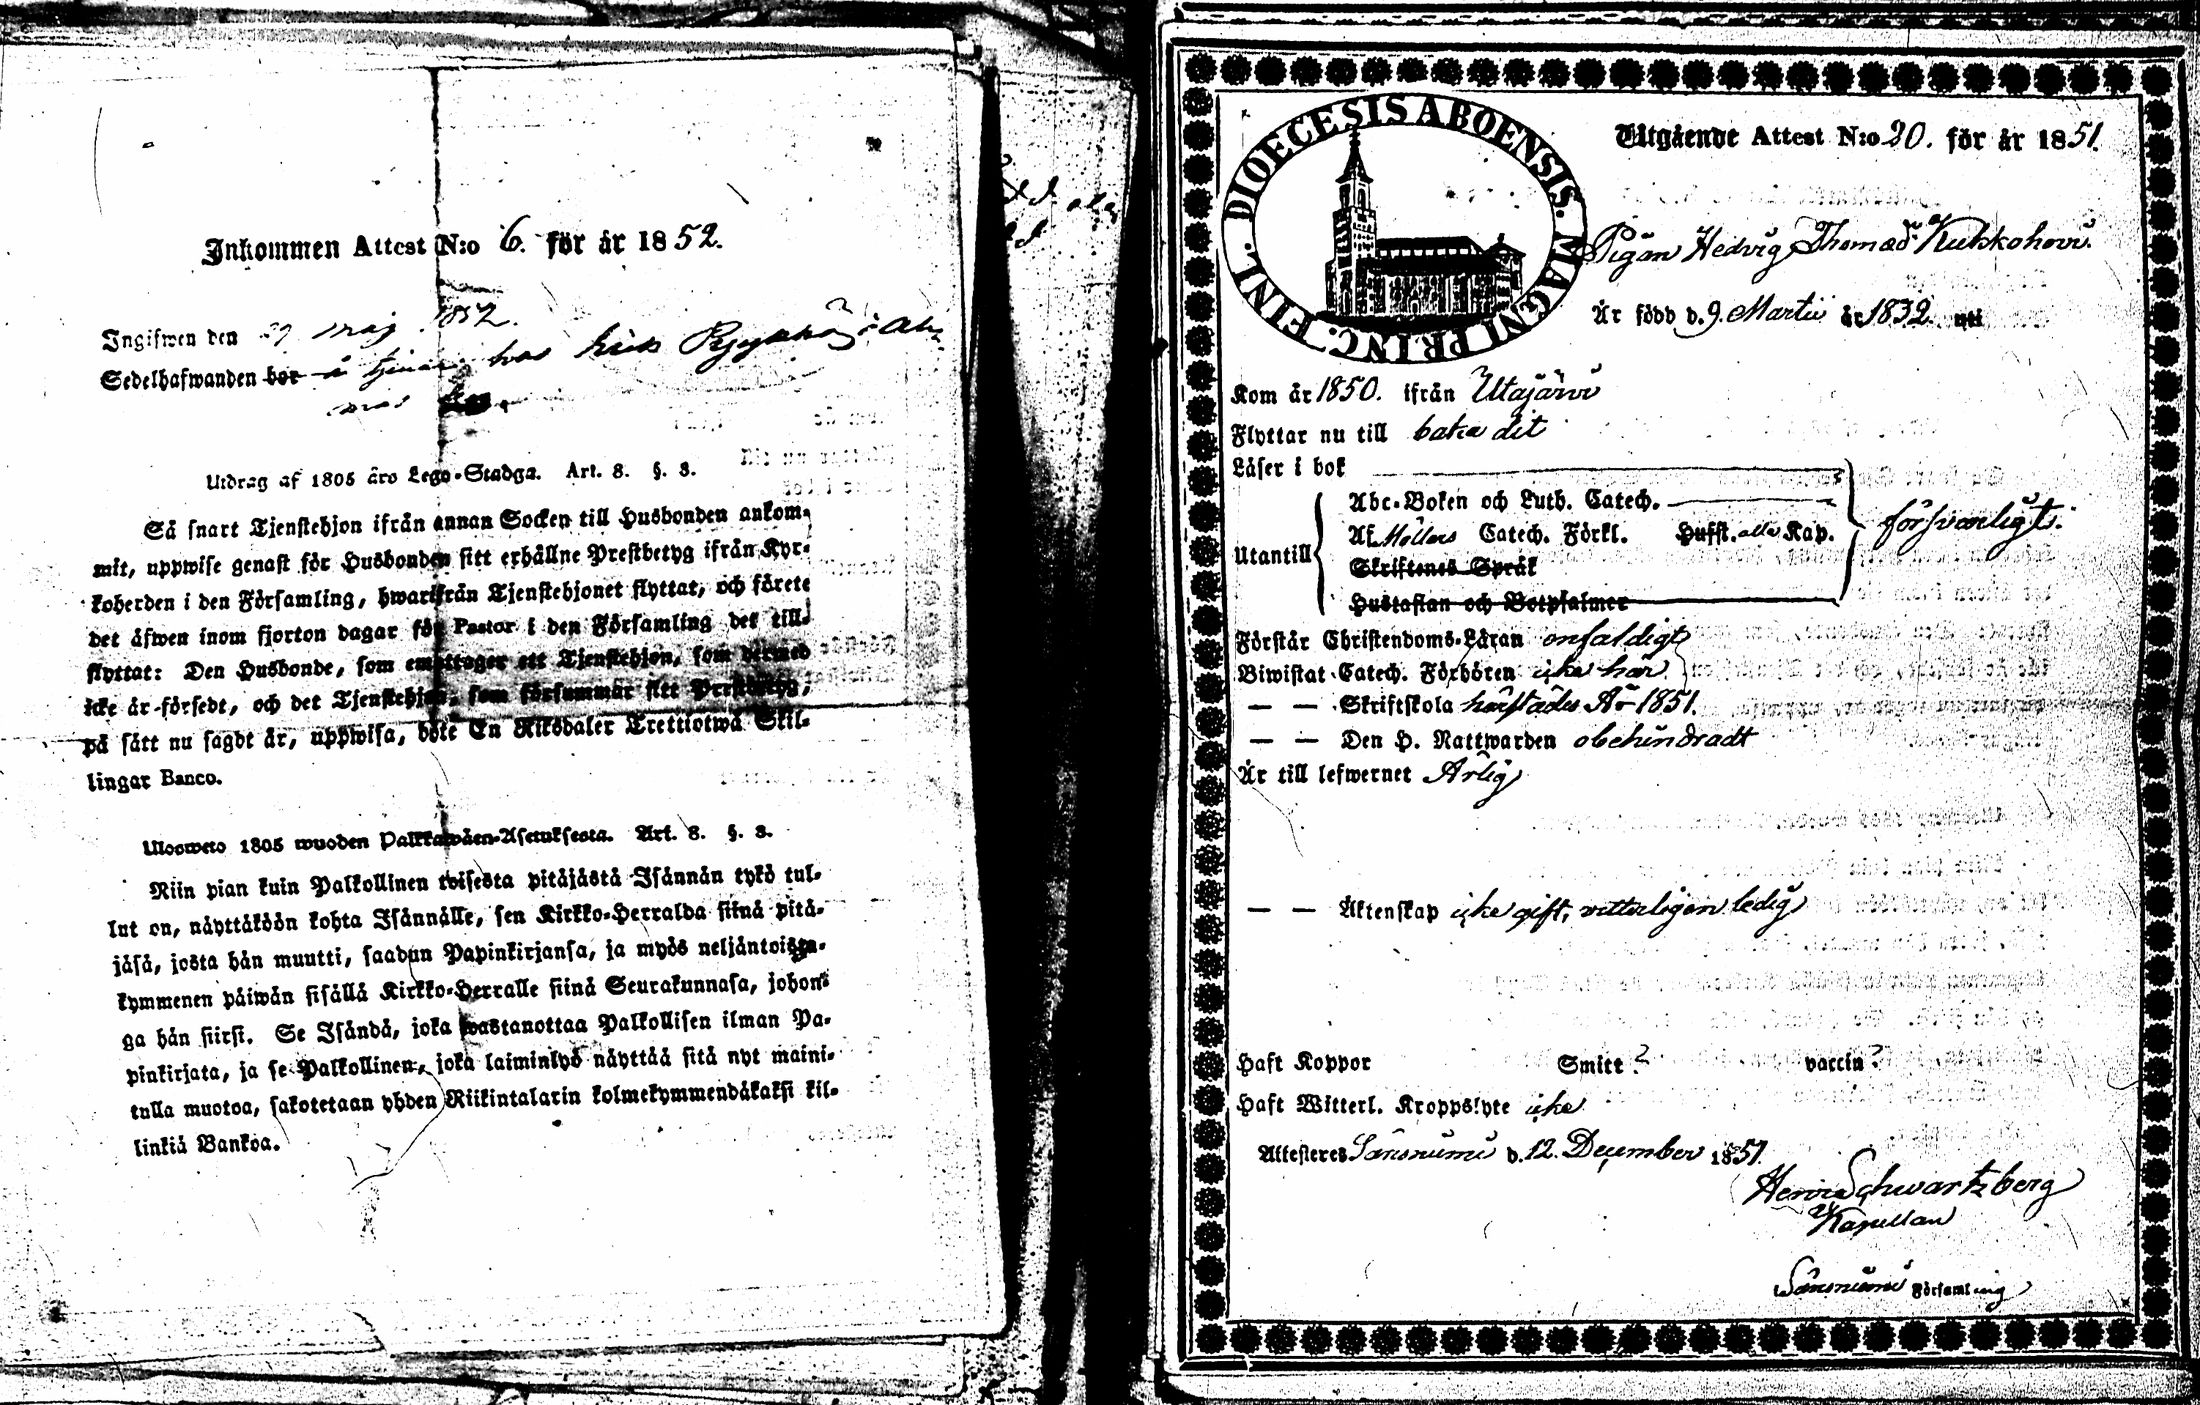 Inkommen Attest N:o 6. för år 1852.
Ingifwen den 29 maj 1852.
Sedelhafwanden bor å tjenar hos
Utdrag af 1805 års Lego-Stadga. Art. 8. §. 3.
Så snart Tjenstehjon ifrån annan Socken till Husbonden ankom-
mit, uppwise genast för Husbonden sitt erhållne Prestbetyg ifrån Kyr-
koherden i den Församling, hwarifrån Tjenstehjonet flyttat, och förete
det äfwen inom fjorton dagar för Pastor i den Församling det till-
flyttat: Den Husbonde, som emottager ett Tjenstehjon, som dermed
icke är försedt, och det Tjenstehjon, som försummar sitt Prestbetyg,
på sätt nu sagdt är, uppwisa, böte En Riksdaler Trettiotwå Skil-
lingar Banco.
Ulosweto 1805 wuoden Palkkawäen-Asetuksesta. Art. 8. §. 3.
Niin pian kuin Palkollinen toisesta pitäjästä Isännän tykö tul-
lut on, näyttäköön kohta Isännälle, sen Kirkko-Herralda siinä pitä-
jäsä, josta hän muutti, saadun Papinkirjansa, ja myös neljäntoista-
kymmenen päiwän sisällä Kirkko-Herralle siinä Seurakunnasa, johon-
ga hän siirsi. Se Isändä, joka wastanottaa Palkollisen ilman Pa-
pinkirjata, ja se Palkollinen, joka laiminlyö näyttää sitä nyt maini-
tulla muotoa, sakotetaan yhden Riikintalarin kolmekymmendäkaksi kil-
linkiä Bankoa.
DIOECESIS ABOENSIS. MAGNI PRINC. FINL.
Utgående Attest N:o 20. för år 1851.
Pigan Hedvig Thomasd: Kukkohovi
Är född d. 9. Martii år 1832. uti
Kom år 1850. ifrån Utajärvi
Flyttar nu till baka dit
Läser i bok
Utantill
Abc-Boken och Luth. Catech.
Af Möllers Catech. Förkl. Hufst. alla Kap.
Skriftenes Språk
Hustaflan och Botpsalmer
försvarligt.
Förstår Christendoms-Läran enfaldigt
Biwistat Catech. Förhören icke här
— — Skriftskola härstädes År 1851.
— — Den H. Nattwarden obehindradt
Är till lefwernet Ärlig
— — Äktenskap icke gift, vitterligen ledig
Haft Koppor Smitt? vaccin?
Haft Witterl. Kroppslyte icke
Attesteres Säresniemi d. 12. December 1851.
Henric Schwartzberg
Kapellan
Säresniemi Församling